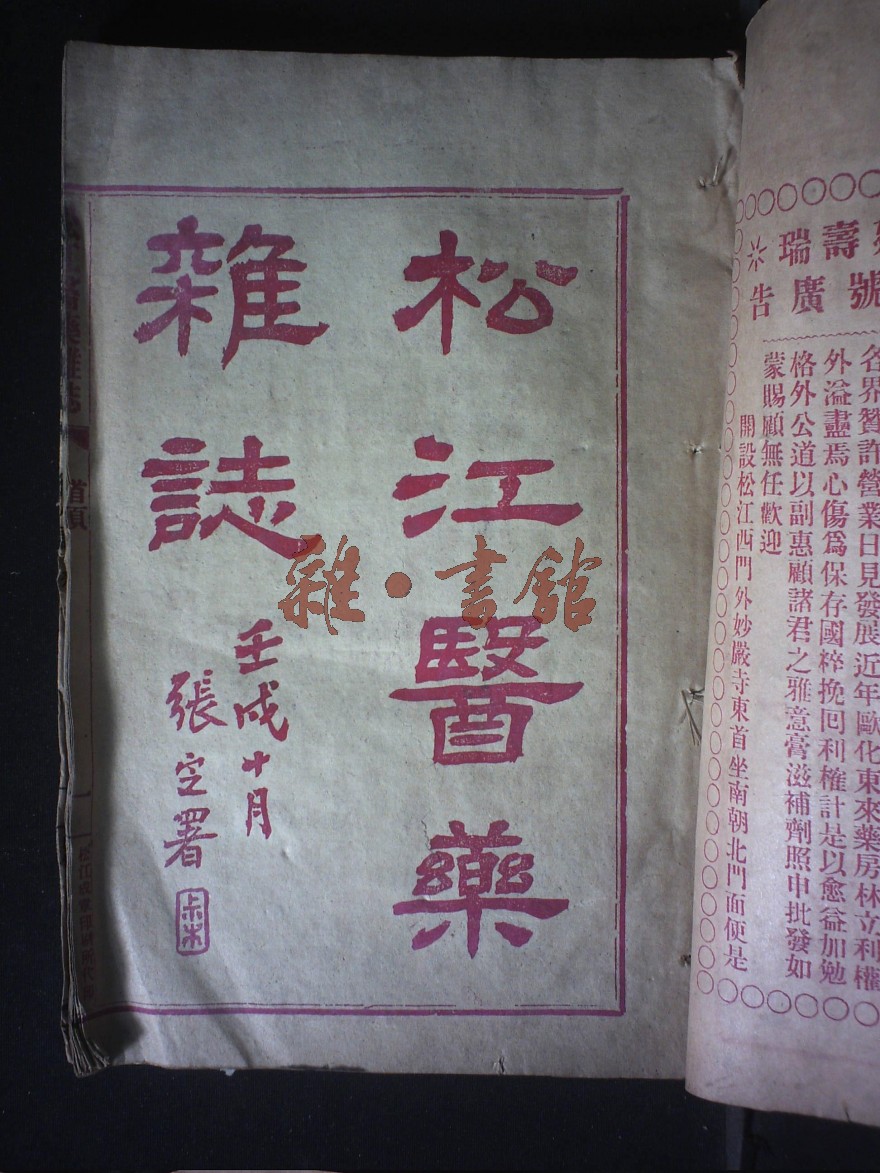 壽瑞
號廣告
各界贊許營業日見發展近年歐化東來藥房林立利權
外溢盡焉心傷爲保存國粹挽回利權計是以愈益加勉
格外公道以副惠顧諸君之雅意膏滋補劑照申批發如
蒙賜顧無任歡迎
開設松江西門外妙嚴寺東首坐南朝北門面便是
松江醫藥
雜誌
壬戌十月
張定署
藥雜誌
首頁
雜·書舘